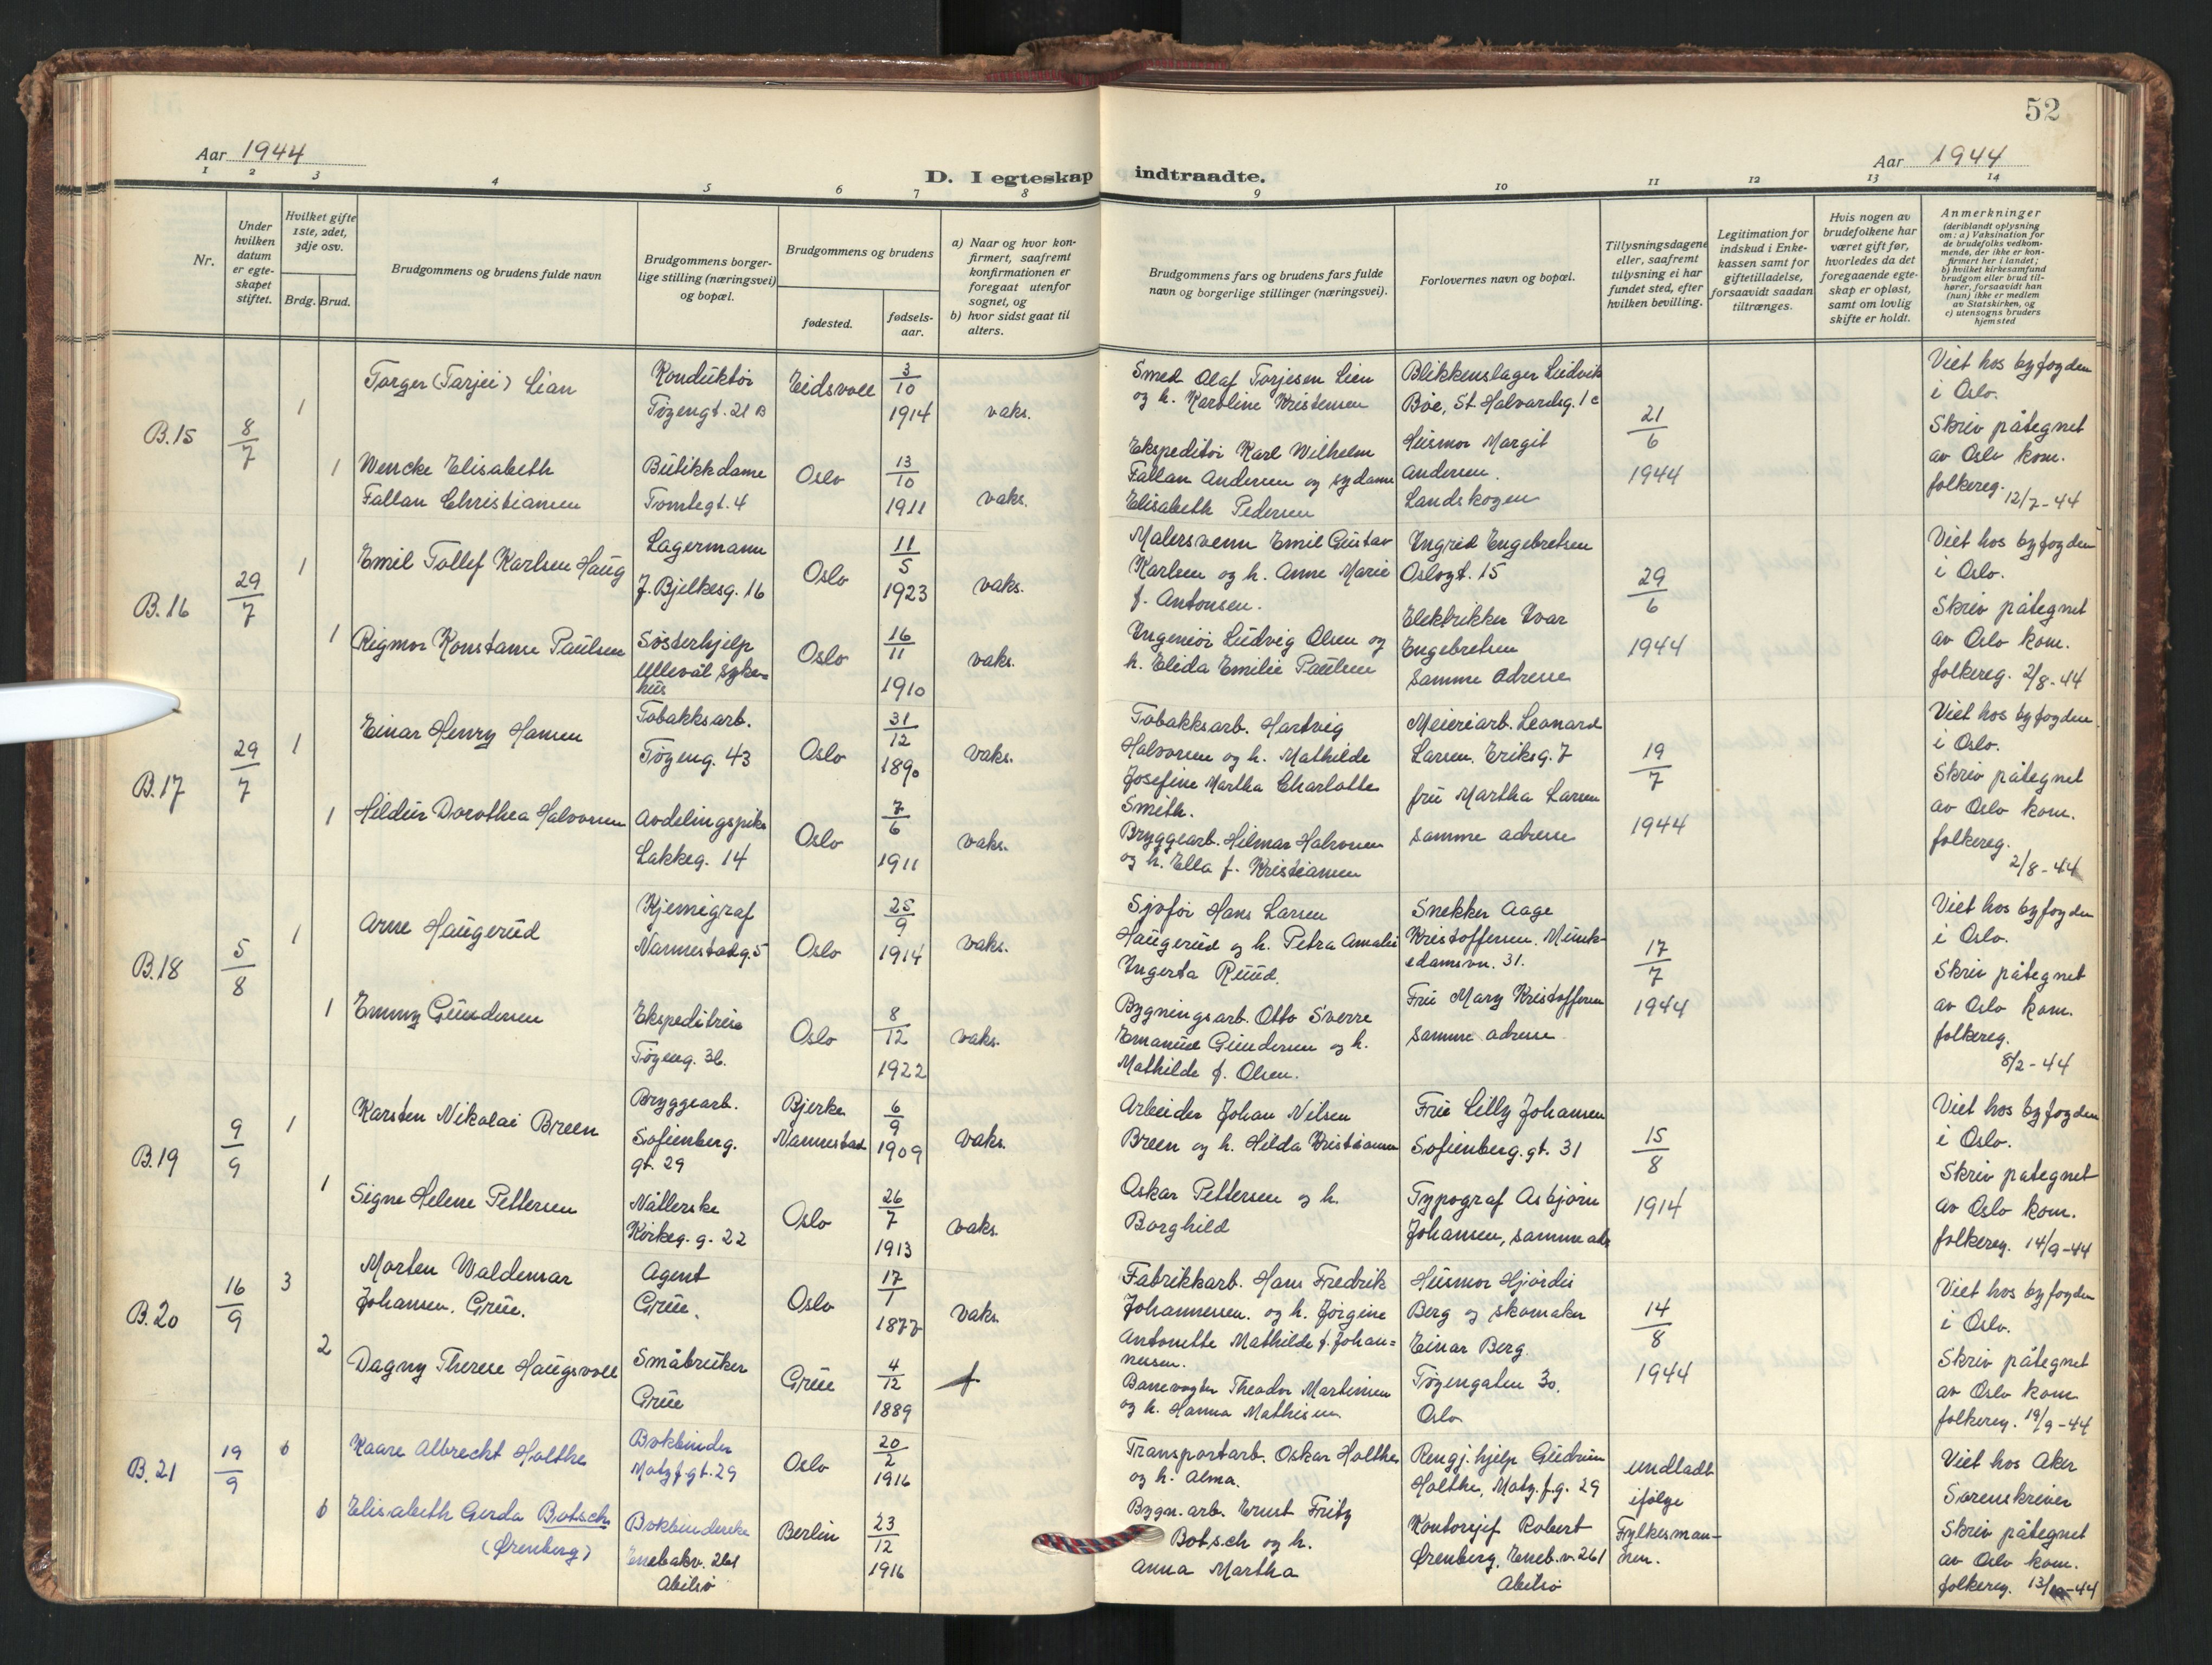 52
Aar 1944
Aar 1944
D. I egteskap indtraadte.
1 2 3 4 5 6 7 8 9 10 11 12 13 14
Nr.
Under
hvilken
datum
er egte-
skapet
stiftet.
Hvilket gifte
1ste, 2det,
3dje osv.
Brdg. Brud.
Brudgommens og brudens fulde navn
Brudgommens borger-
lige stilling (næringsvei)
og bopæl.
Brudgommens og brudens
fødested.
fødsels-
aar.
a) Naar og hvor kon-
firmert, saafremt
konfirmationen er
foregaat utenfor
sognet, og
b) hvor sidst gaat til
alters.
Brudgommens fars og brudens fars fulde
navn og borgerlige stillinger (næringsvei).
Forlovernes navn og bopæl.
Tillysningsdagene
eller, saafremt
tillysning ei har
fundet sted, efter
hvilken bevilling.
Legitimation for
indskud i Enke-
kassen samt for
giftetilladelse,
forsaavidt saadan
tiltrænges.
Hvis nogen av
brudefolkene har
været gift før,
hvorledes da det
foregaaende egte-
skap er opløst,
samt om lovlig
skifte er holdt.
Anmerkninger
(deriblandt oplysning
om: a) Vaksination for
de brudefolks vedkom-
mende, der ikke er kon-
firmert her i landet;
b) hvilket kirkesamfund
brudgom eller brud til-
hører, forsaavidt han
(hun) ikke er medlem
av Statskirken, og
c) utensogns bruders
hjemsted
B.15
8/7
1
Torger (Tarjei) Lian
Konduktør
Tøyengt. 21 B
Eidsvoll
3/10
1914
vaks.
1
Wencke Elisabeth
Fallan Christiansen
Butikkdame
Tomtegt. 4
Oslo
13/10
1911
vaks.
Smed Olaf Torjesen Lien
og h. Karoline Kristensen
Ekspeditør Karl Wilhelm
Fallan Andersen og sydame
Elisabeth Pedersen
Blikkenslager Ludvik
Bøe, St. Halvardsg. 1 c
Husmor Margit
Andersen.
Landskogen
21/6
1944
Viet hos byfogden
i Oslo.
Skriv påtegnet
av Oslo kom.
folkereg.
12/7-44
B.16
29/7
1
Emil Tollef Karlsen Haug
Lagermann
J. Bjelkesg. 16
Oslo
11/5
1923
vaks.
1
Rigmor Konstanse Paulsen
Søsterhjelp
Ullevål syke=
hus
Oslo
16/11
1910
vaks.
Malersvenn Emil Gustav
Karlsen og h. Anne Marie
f. Antonsen.
Ingeniør Ludvig Olsen og
h. Elida Emilie Paulsen
Ingrid Engebretsen
Oslogt. 15
Elektrikker Ivar
Engebretsen
Samme adresse
29/6
1944
Viet hos byfogden
i Oslo.
Skriv påtegnet
av Oslo kom.
folkereg. 2/8-44
B.17
29/7
1
Einar Henry Hansen
Tobakksarb.
Tøyeng. 43
Oslo
31/12
1890
vaks.
1
Hildur Dorothea Halvorsen
Avdelingspike
Lakkeg. 14
Oslo
7/6
1911
vaks.
Tobakksarb. Hartvig
Halvorsen og h. Mathilde
Josefine Martha Charlotte
Smith.
Bryggearb. Hilmar Halvorsen
og h. Ella f. Kristiansen
Meieriarb. Leonard
Larsen. Eriksg. 7
fru Martha Larsen
samme adresse
19/7
1944
Viet hos byfogden
i Oslo.
Skriv påtegnet
av Oslo kom.
folkereg.
2/8-44
B.18
5/8
1
Arne Haugerud
Kjemigraf
Nannestadg. 5
Oslo
25/9
1914
vaks.
1
Emmy Gundersen
Ekspeditrise
Tøyeng. 36.
Oslo
8/12
1922
vaks.
Sjofør Hans Larsen
Haugerud og h. Petra Amalie
Ingerta Ruud.
Bygningsarb. Otto Sverre
Emanuel Gundersen og h.
Mathilde f. Olsen.
Snekker Aage
Kristoffersen. Munk-
edamsvn. 31.
Fru Mary Kristoffersen
samme adresse
17/7
1944
Viet hos byfogden
i Oslo.
Skriv påtegnet
av Oslo kom.
folkereg.
8/2-44
B.19
9/9
1
Karsten Nikolai Breen
Bryggearb.
Sofienberg.
gt. 29
Bjerke
Nannestad
6/9
1909
vaks.
1
Signe Helene Pettersen
Nåtlerske
Kirkeg. g. 22
Oslo
26/7
1913
vaks.
Arbeider Johan Nilsen
Breen og h. Hilda Kristiansen
Oskar Pettersen og h.
Borghild
Frue Lilly Johansen
Sofienberg. gt. 31
Typograf Asbjørn
Johansen, samme adr
15/8
1914
Viet hos byfogden
i Oslo.
Skriv pategnet
av Oslo kom.
folkereg. 14/9-44
B.20
16/9
3
Morten Waldemar
Johansen. Grue.
Agent
Grue.
Oslo
17/1
1877
vaks.
2
Dagny Therese Haugsvoll
Småbruker
Grue
Grue
4/12
1889
f
Fabrikkarb. Hans Fredrik
Johannessen. og h. Jørgine
Antonette Mathilde f. Johan=
nesen.
Banevogter Theodor Martinsen
og h. Hanna Mathisen
Husmor Hjørdis
Berg og skomaker
Einar Berg.
Tøyengaten 30.
Oslo
14/8
1944
Viet hos byfogden
i Oslo.
Skriv påtegnet
av Oslo kom
folkereg. 19/9-44
B.21
19/9
6
Kaare Albrecht Holthe
Bokbinder
Motzf.gt. 29
Oslo
20/2
1916
6
Elisabeth Gerda Botsch
(Ørenberg)
Bokbinderske
Enebakv. 261
Abilsø
Berlin
23/12
1916
Transportarb. Oskar Holthe
og h. Alma.
Bygn. arb. Ernst Fritz
Botsch og h.
Anna Martha
Rengj. hjelp Gudrun
Holthe, Motz.f.g. 29
Kontorsjef Robert
Ørenberg, Eneb.v. 261
Abilsø
undladt
ifølge
Fylkesman-
nen.
Viet hos Aker
Sorenskriver
Skriv påtegnet
av Oslo kom.
folkereg. 13/10-44